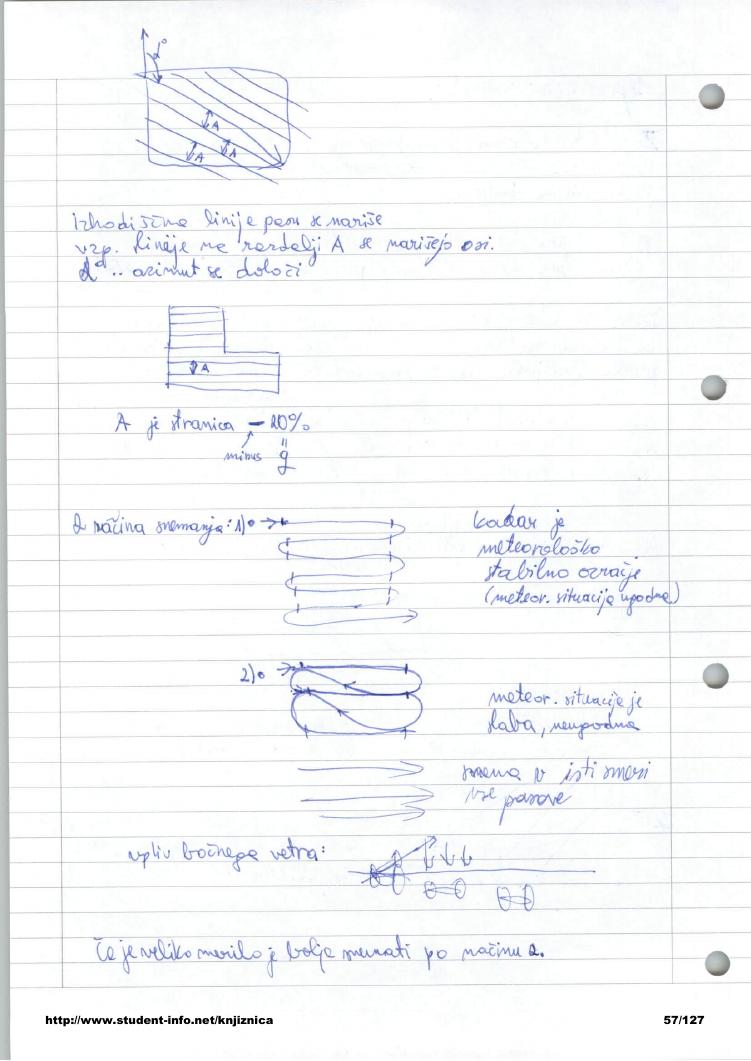 α°
A
A
A
izhodiščne linije pasu se nariše
vzp. linije na razdalji A se narišejo osi.
α° .. azimut se določi
A
A je stranica - 20%
minus
"
q
2 načina snemanja: 1)
kadar je
meteorološko
stabilno ozračje
(meteor. situacija ugodna)
2)
meteor. situacija je
slaba, neugodna
snema v isti smeri
vse pasove
vpliv bočnega vetra:
Če je veliko merilo je bolje snemati po načinu 2.
http://www.student-info.net/knjiznica
57/127